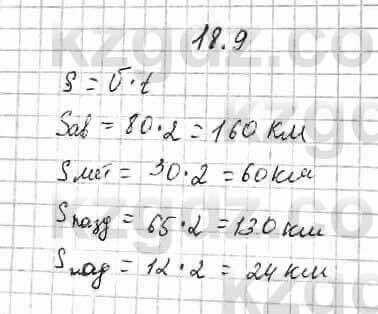 18.9
S = υ·t
Sав = 80·2 = 160 км
Sмет = 30·2 = 60 км
Sпоезд = 65·2 = 130 км
Sлод = 12·2 = 24 км